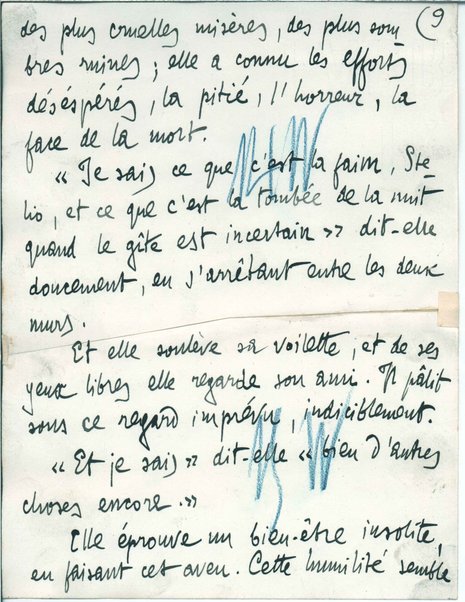 (9
des plus cruelles misères, des plus som
bres ruines ; elle a connu les efforts
désespérés, la pitié, l'horreur, la
face de la mort.
« Je sais ce que c'est la faim, Ste
lio, et ce que c'est la tombée de la nuit
quand le gîte est incertain » dit-elle
doucement, en s'arrêtant entre les deux
murs.
Et elle soulève sa voilette, et de ses
yeux libres elle regarde son ami. Il pâlit
sous ce regard imprévu, indiciblement.
« Et je sais » dit-elle « bien d'autres
choses encore.»
Elle éprouve un bien-être insolite,
en faisant cet aveu. Cette humilité semble